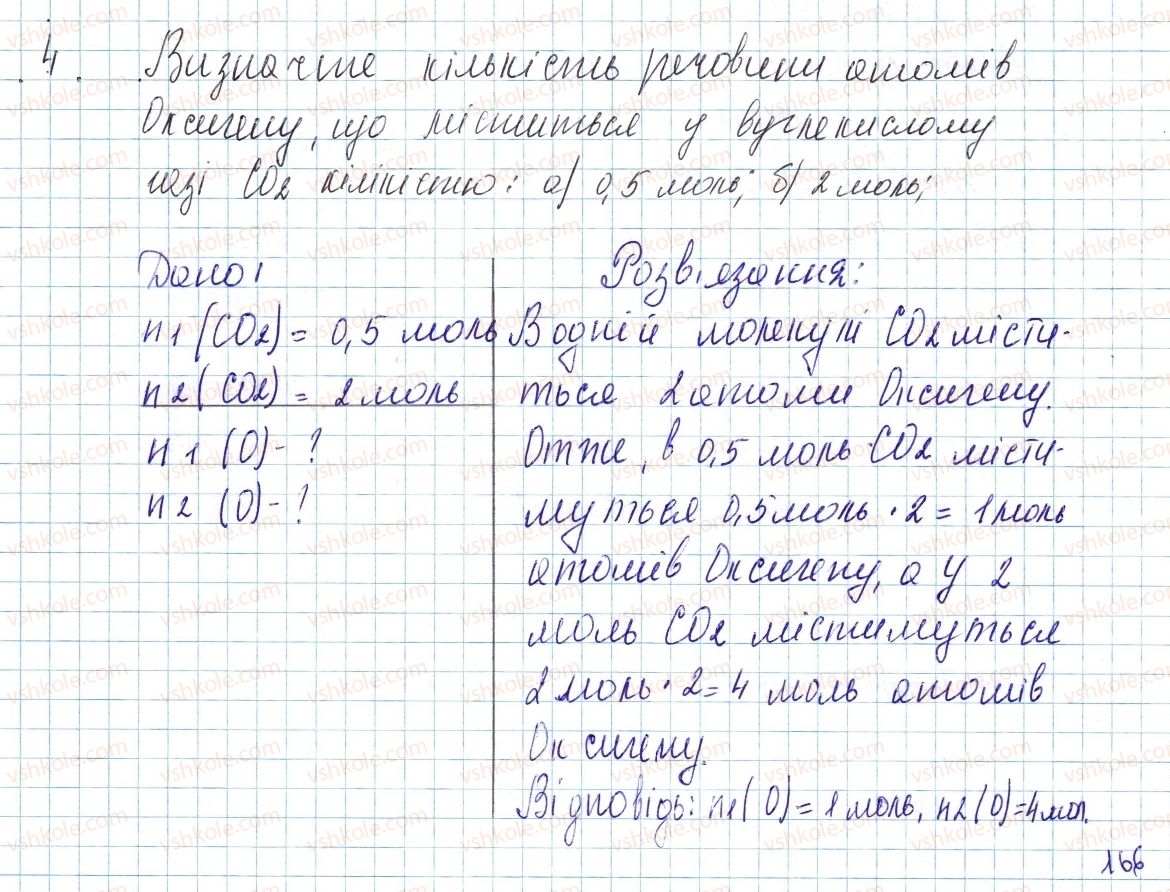 4. Визначте кількість речовини атомів
Оксигену, що міститься у вуглекислому
газі CO2 кількістю: а) 0,5 моль; б) 2 моль;
Дано:
n1 (CO2) = 0,5 моль
n2 (CO2) = 2 моль
n1 (O) - ?
n2 (O) - ?
Розв'язання:
В одній молекулі CO2 місти-
ться 2 атоми Оксигену.
Отже, в 0,5 моль CO2 місти-
муться 0,5 моль · 2 = 1 моль
атомів Оксигену, а у 2
моль CO2 міститимуться
2 моль · 2 = 4 моль атомів
Оксигену.
Відповідь: n1 (O) = 1 моль, n2 (O) = 4 мол.
166
vshkole.com